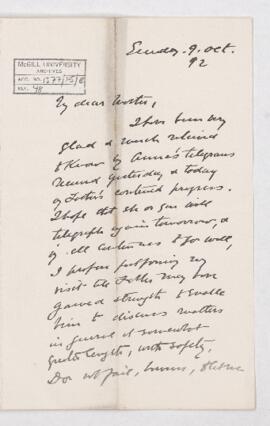 McGILL UNIVERSITY
ARCHIVES
ACC. NO. 1277/15/8
REF. 48
Sunday. 9. Oct.
92
My dear
I have been very
glad & much relieved
to know by Annie's telegrams
received yesterday, & today
of Father's continued progress.
I hope that she or you will
telegraph again tomorrow, &
if all continues to go well,
I propose postponing my
visit till Father may have
gained strength to enable
him to discuss matters
in general at somewhat
greater length, with safety.
Do not fail, however,